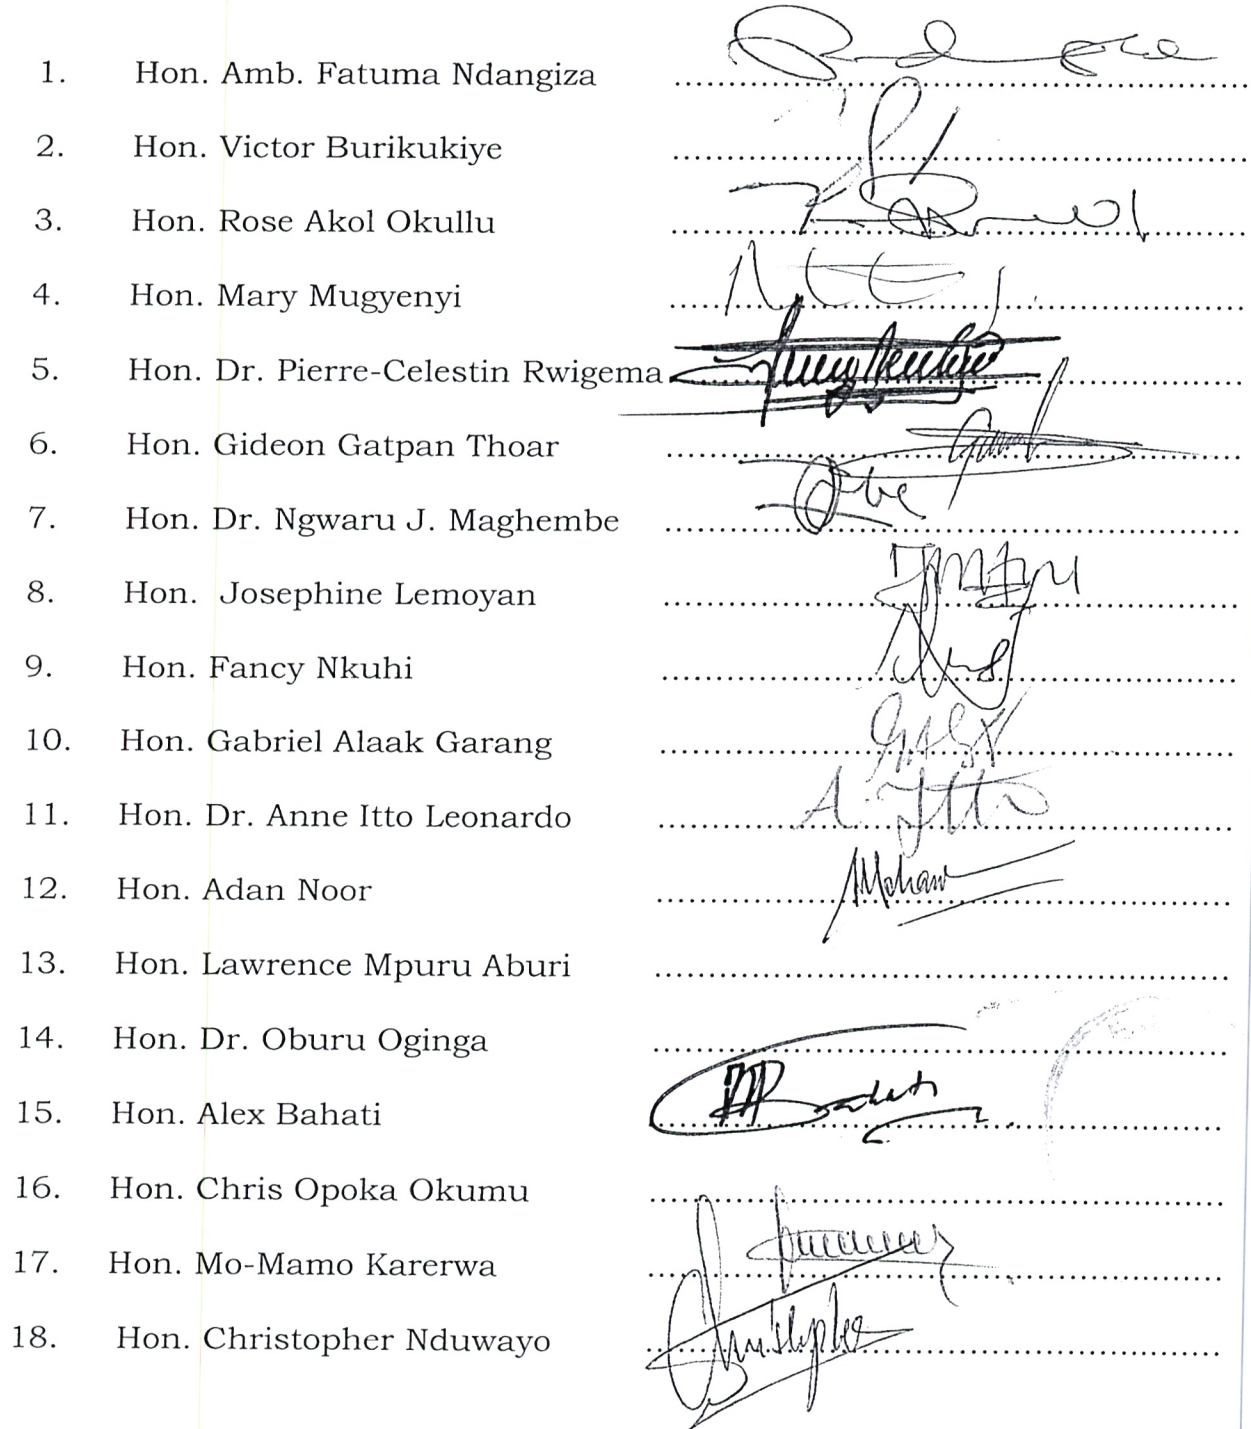 1. Hon. Amb. Fatuma Ndangiza
2. Hon. Victor Burikukiye
3. Hon. Rose Akol Okullu
4. Hon. Mary Mugyenyi
5. Hon. Dr. Pierre-Celestin Rwigema
6. Hon. Gideon Gatpan Thoar
7. Hon. Dr. Ngwaru J. Maghembe
8. Hon. Josephine Lemoyan
9. Hon. Fancy Nkuhi
10. Hon. Gabriel Alaak Garang
11. Hon. Dr. Anne Itto Leonardo A. Itto
12. Hon. Adan Noor
13. Hon. Lawrence Mpuru Aburi
14. Hon. Dr. Oburu Oginga
15. Hon. Alex Bahati Bahati
16. Hon. Chris Opoka Okumu
17. Hon. Mo-Mamo Karerwa
18. Hon. Christopher Nduwayo Christopher